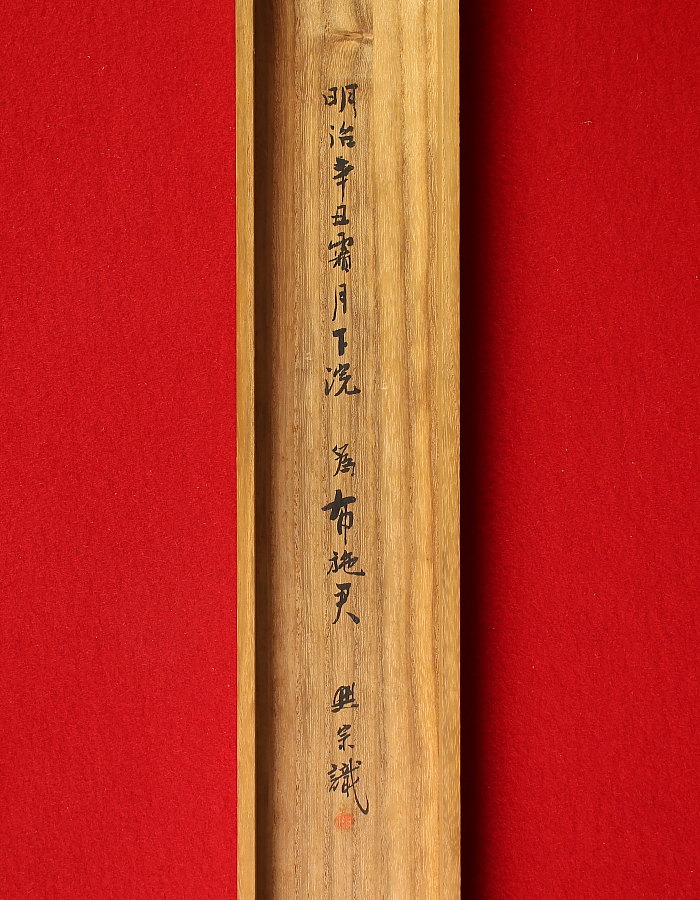 明治辛丑霜月下浣 為布施君 興宗識